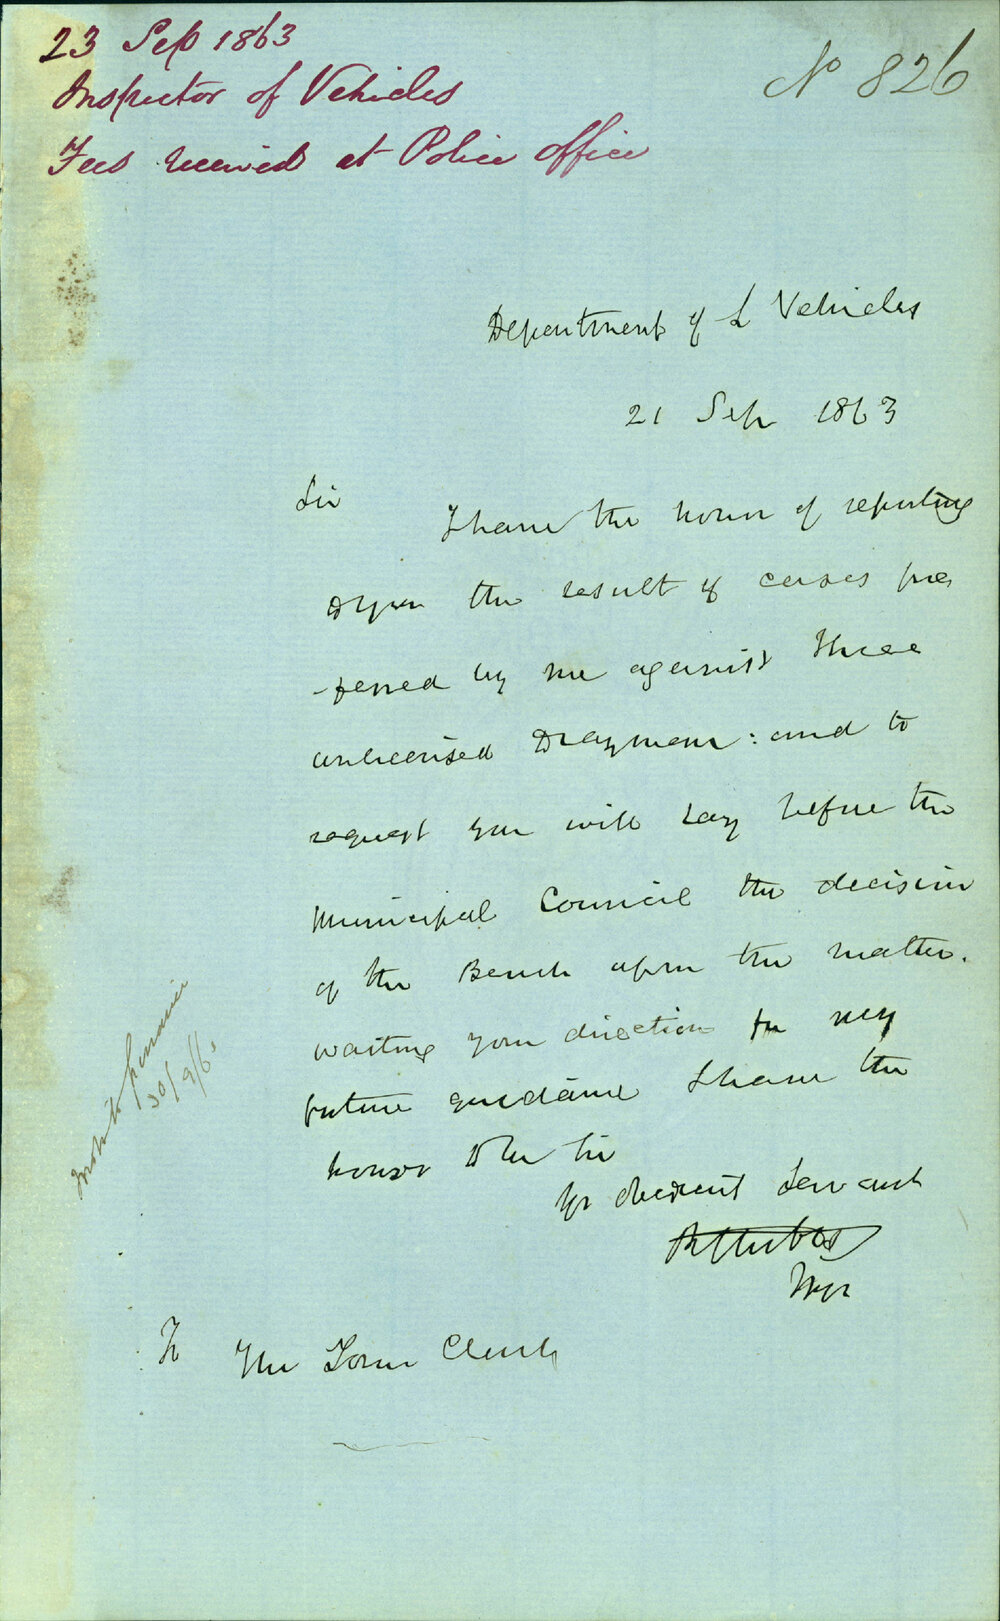 23 Sep 1863
Inspector of Vehicles
Fees received at Police office
No 826
Department of L Vehicles
21 Sep 1863
Sir
I have the honor of reporting
upon the result of cases pre
-ferred by me against three
unlicensed Draymen: and to
request you will lay before the
Municipal Council the decision
of the Bench upon the matter.
waiting your direction for my
future guidance I have the
honor to be Sir
Yr obedient Servant
To The Town Clerk